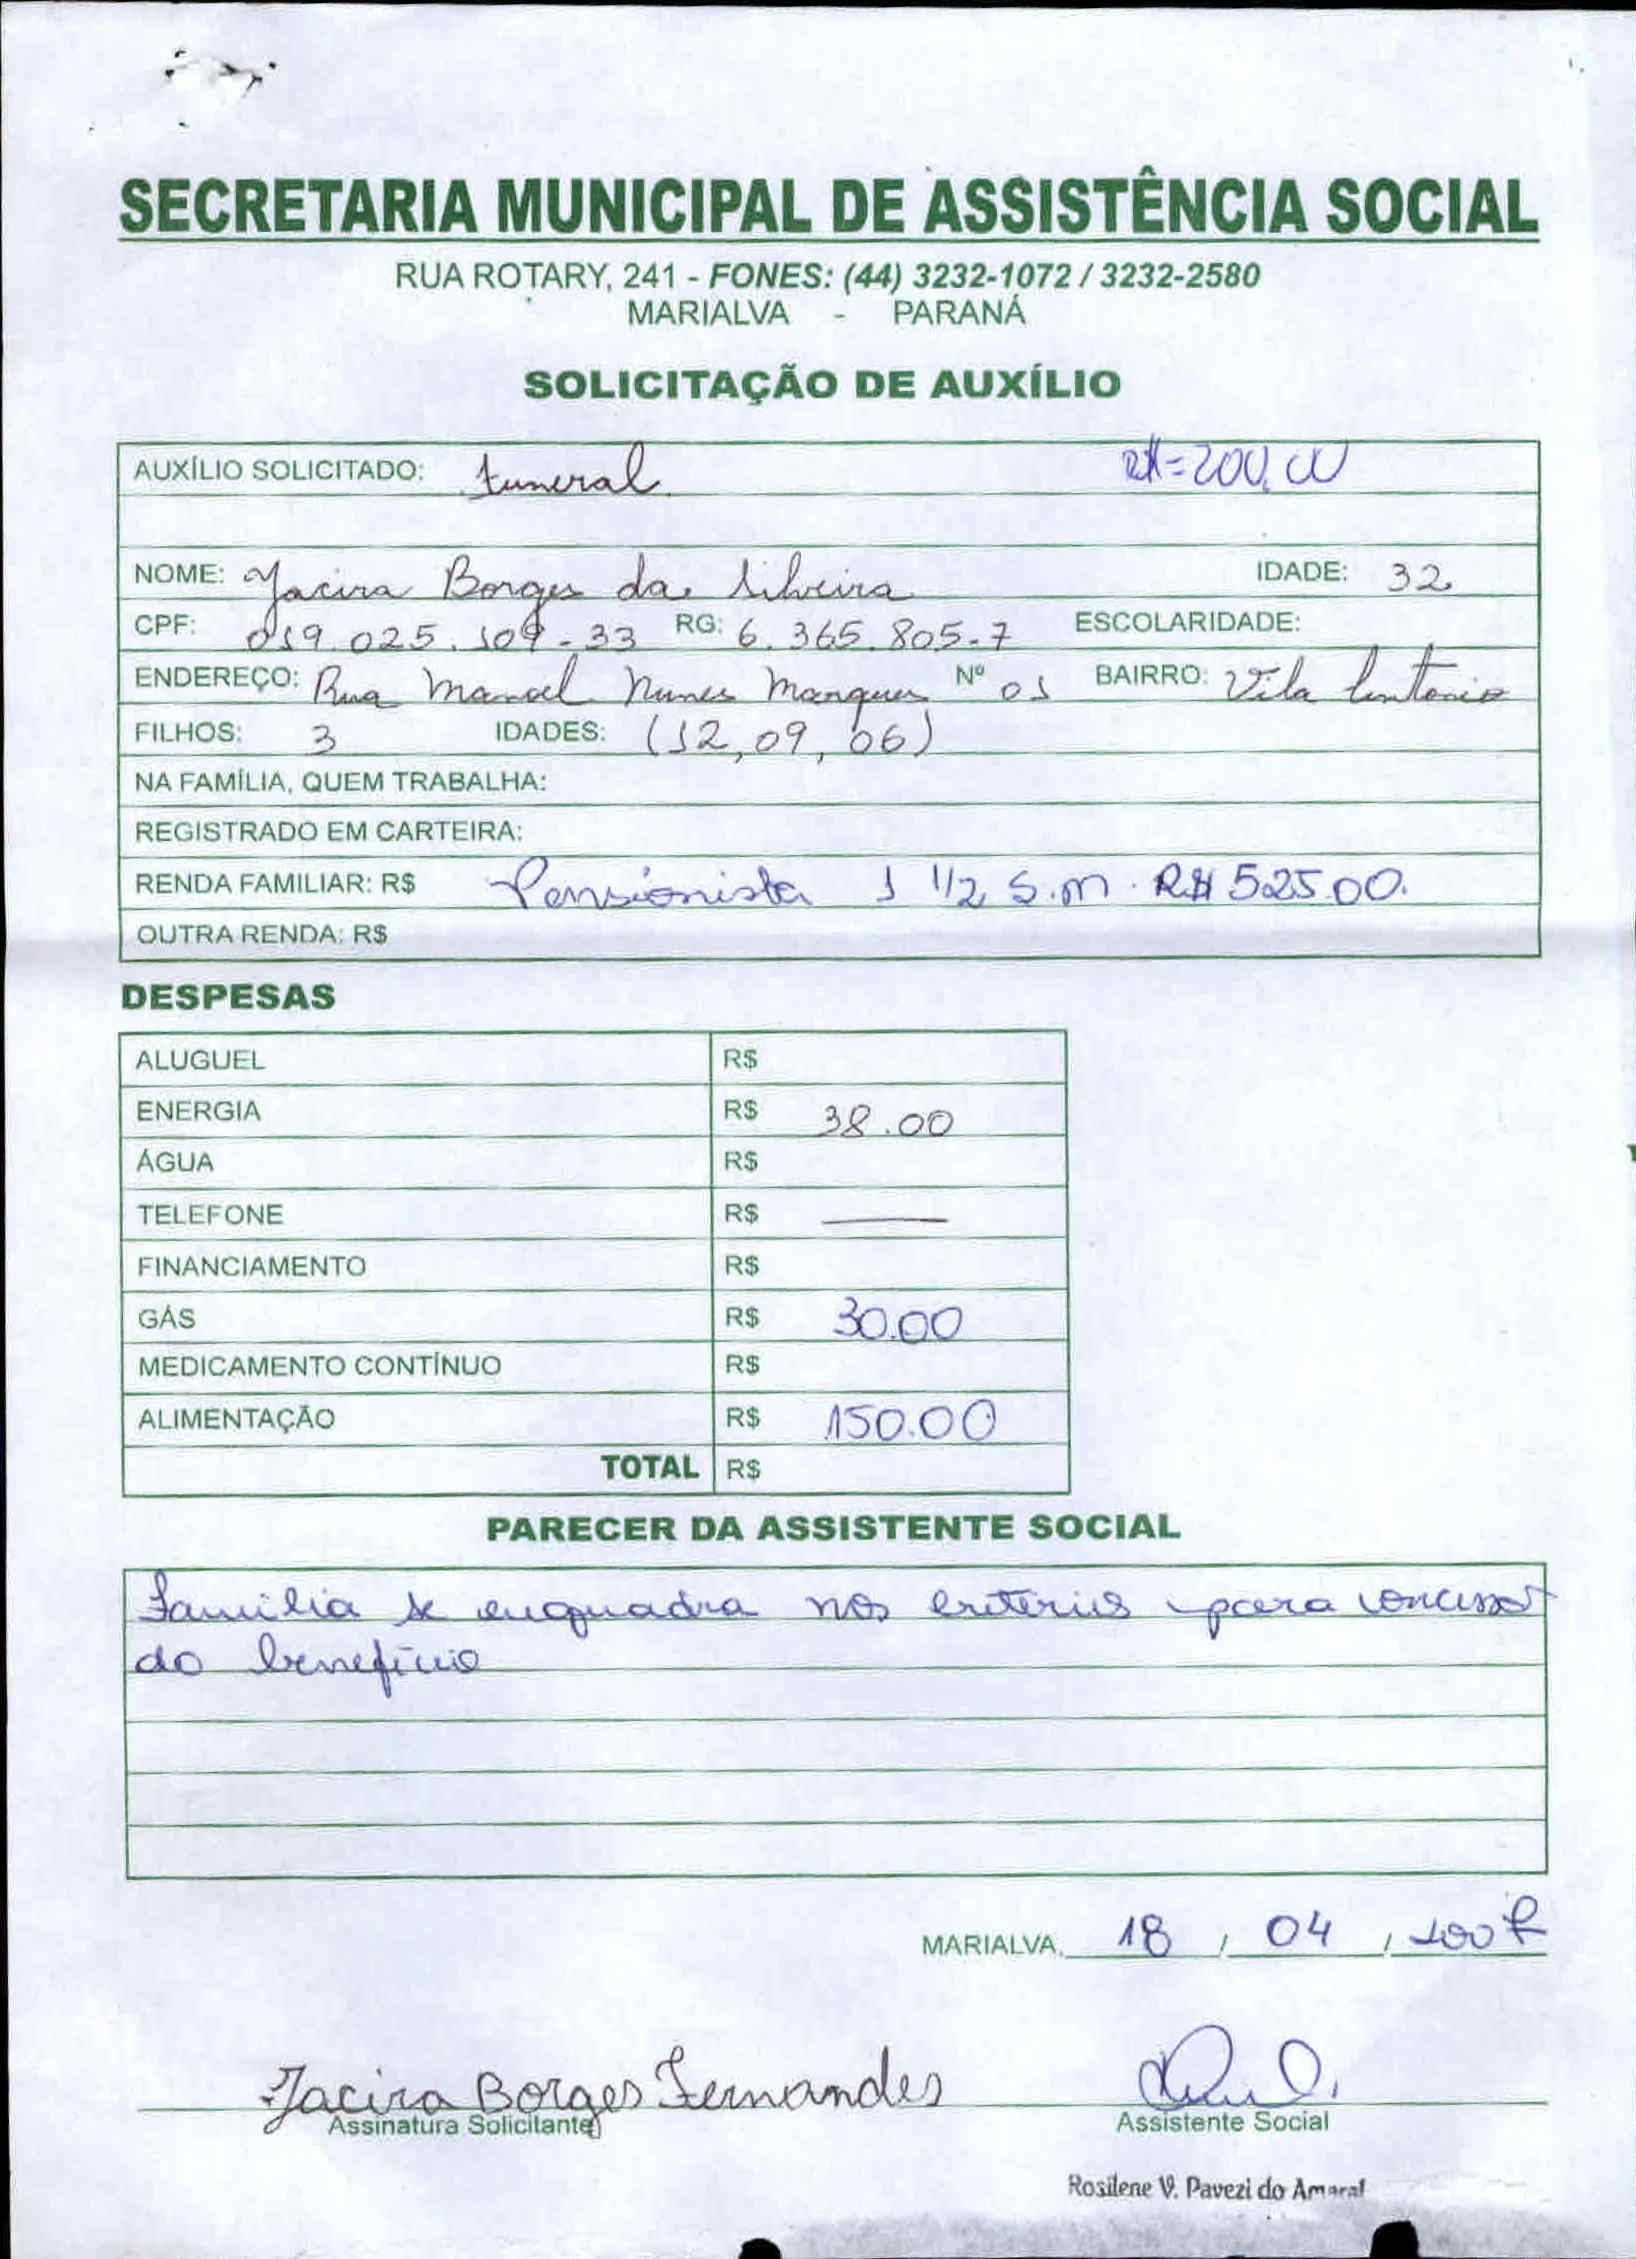 SECRETARIA MUNICIPAL DE ASSISTÊNCIA SOCIAL
RUA ROTARY, 241 - FONES: (44) 3232-1072 / 3232-2580
MARIALVA - PARANÁ
SOLICITAÇÃO DE AUXÍLIO
AUXÍLIO SOLICITADO: funeral R$=200,00
NOME: Jacira Borges da Silveira IDADE: 32
CPF: 019.025.109-33 RG: 6.365.805-7 ESCOLARIDADE:
ENDEREÇO: Rua Manoel Nunes Marques Nº 01 BAIRRO: Vila Antonio
FILHOS: 3 IDADES: (12,09,06)
NA FAMÍLIA, QUEM TRABALHA:
REGISTRADO EM CARTEIRA:
RENDA FAMILIAR: R$ Pensionista 1 1/2 S.M. R$ 525.00.
OUTRA RENDA: R$
DESPESAS
ALUGUEL R$
ENERGIA R$ 38.00
ÁGUA R$
TELEFONE R$
FINANCIAMENTO R$
GÁS R$ 30.00
MEDICAMENTO CONTÍNUO R$
ALIMENTAÇÃO R$ 150.00
TOTAL R$
PARECER DA ASSISTENTE SOCIAL
Família se enquadra nos critérios para concessão
do benefício
MARIALVA, 18 / 04 /
Jacira Borges Fernandes
Assinatura Solicitante
Assistente Social
Rosilene V. Pavezi do Amaral